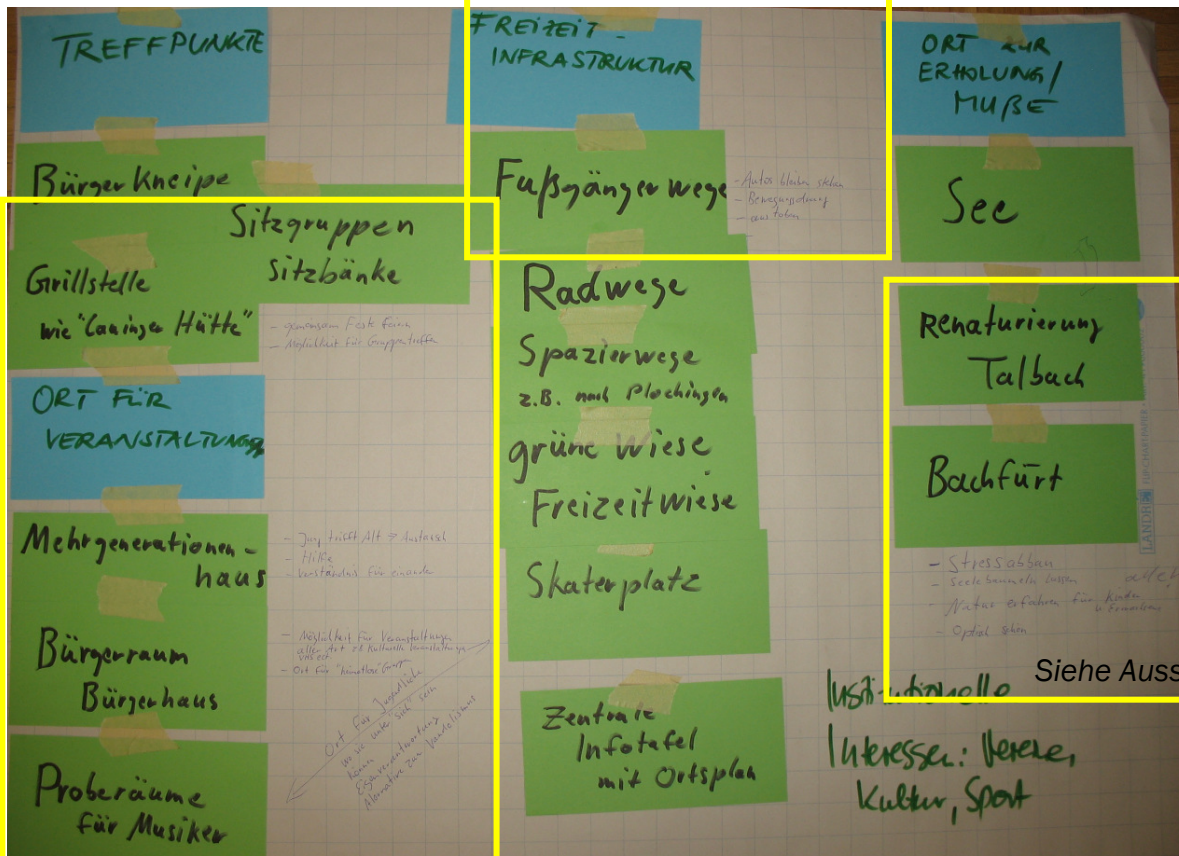 TREFFPUNKTE
Bürgerkneipe
Sitzgruppen
Sitzbänke
Grillstelle
wie "Laninger Hütte"
- gemeinsam Feste feiern
- Möglichkeit für Gruppentreffen
ORT FÜR
VERANSTALTUNGEN
Mehrgenerationen-
haus
- Jung trifft Alt → Austausch
- Hilfe
- Verständnis für einander
Bürgerraum
Bürgerhaus
- Möglichkeit für Veranstaltungen
aller Art z.B. kulturelle Veranstaltungen
- Ort für "heimatlose" Gruppen
Ort für Jugendliche
wo sie unter sich sein
können
Eigenverantwortung
Alternative zum Vandalismus
Proberäume
für Musiker
FREIZEIT-
INFRASTRUKTUR
Fußgängerwege
- Autos bleiben stehen
- Bewegungsdrang
- austoben
Radwege
Spazierwege
z.B. nach Plochingen
grüne Wiese
Freizeitwiese
Skaterplatz
Zentrale
Infotafel
mit Ortsplan
ORT ZUR
ERHOLUNG/
MUßE
See
Renaturierung
Talbach
Bachfurt
- Stressabbau
- Seele baumeln lassen
- Natur erfahren für Kinder
u. Erwachsene
- Optisch schön
Siehe Auss
Institutionelle
Interessen: Vereine,
Kultur, Sport
LANDRÉ